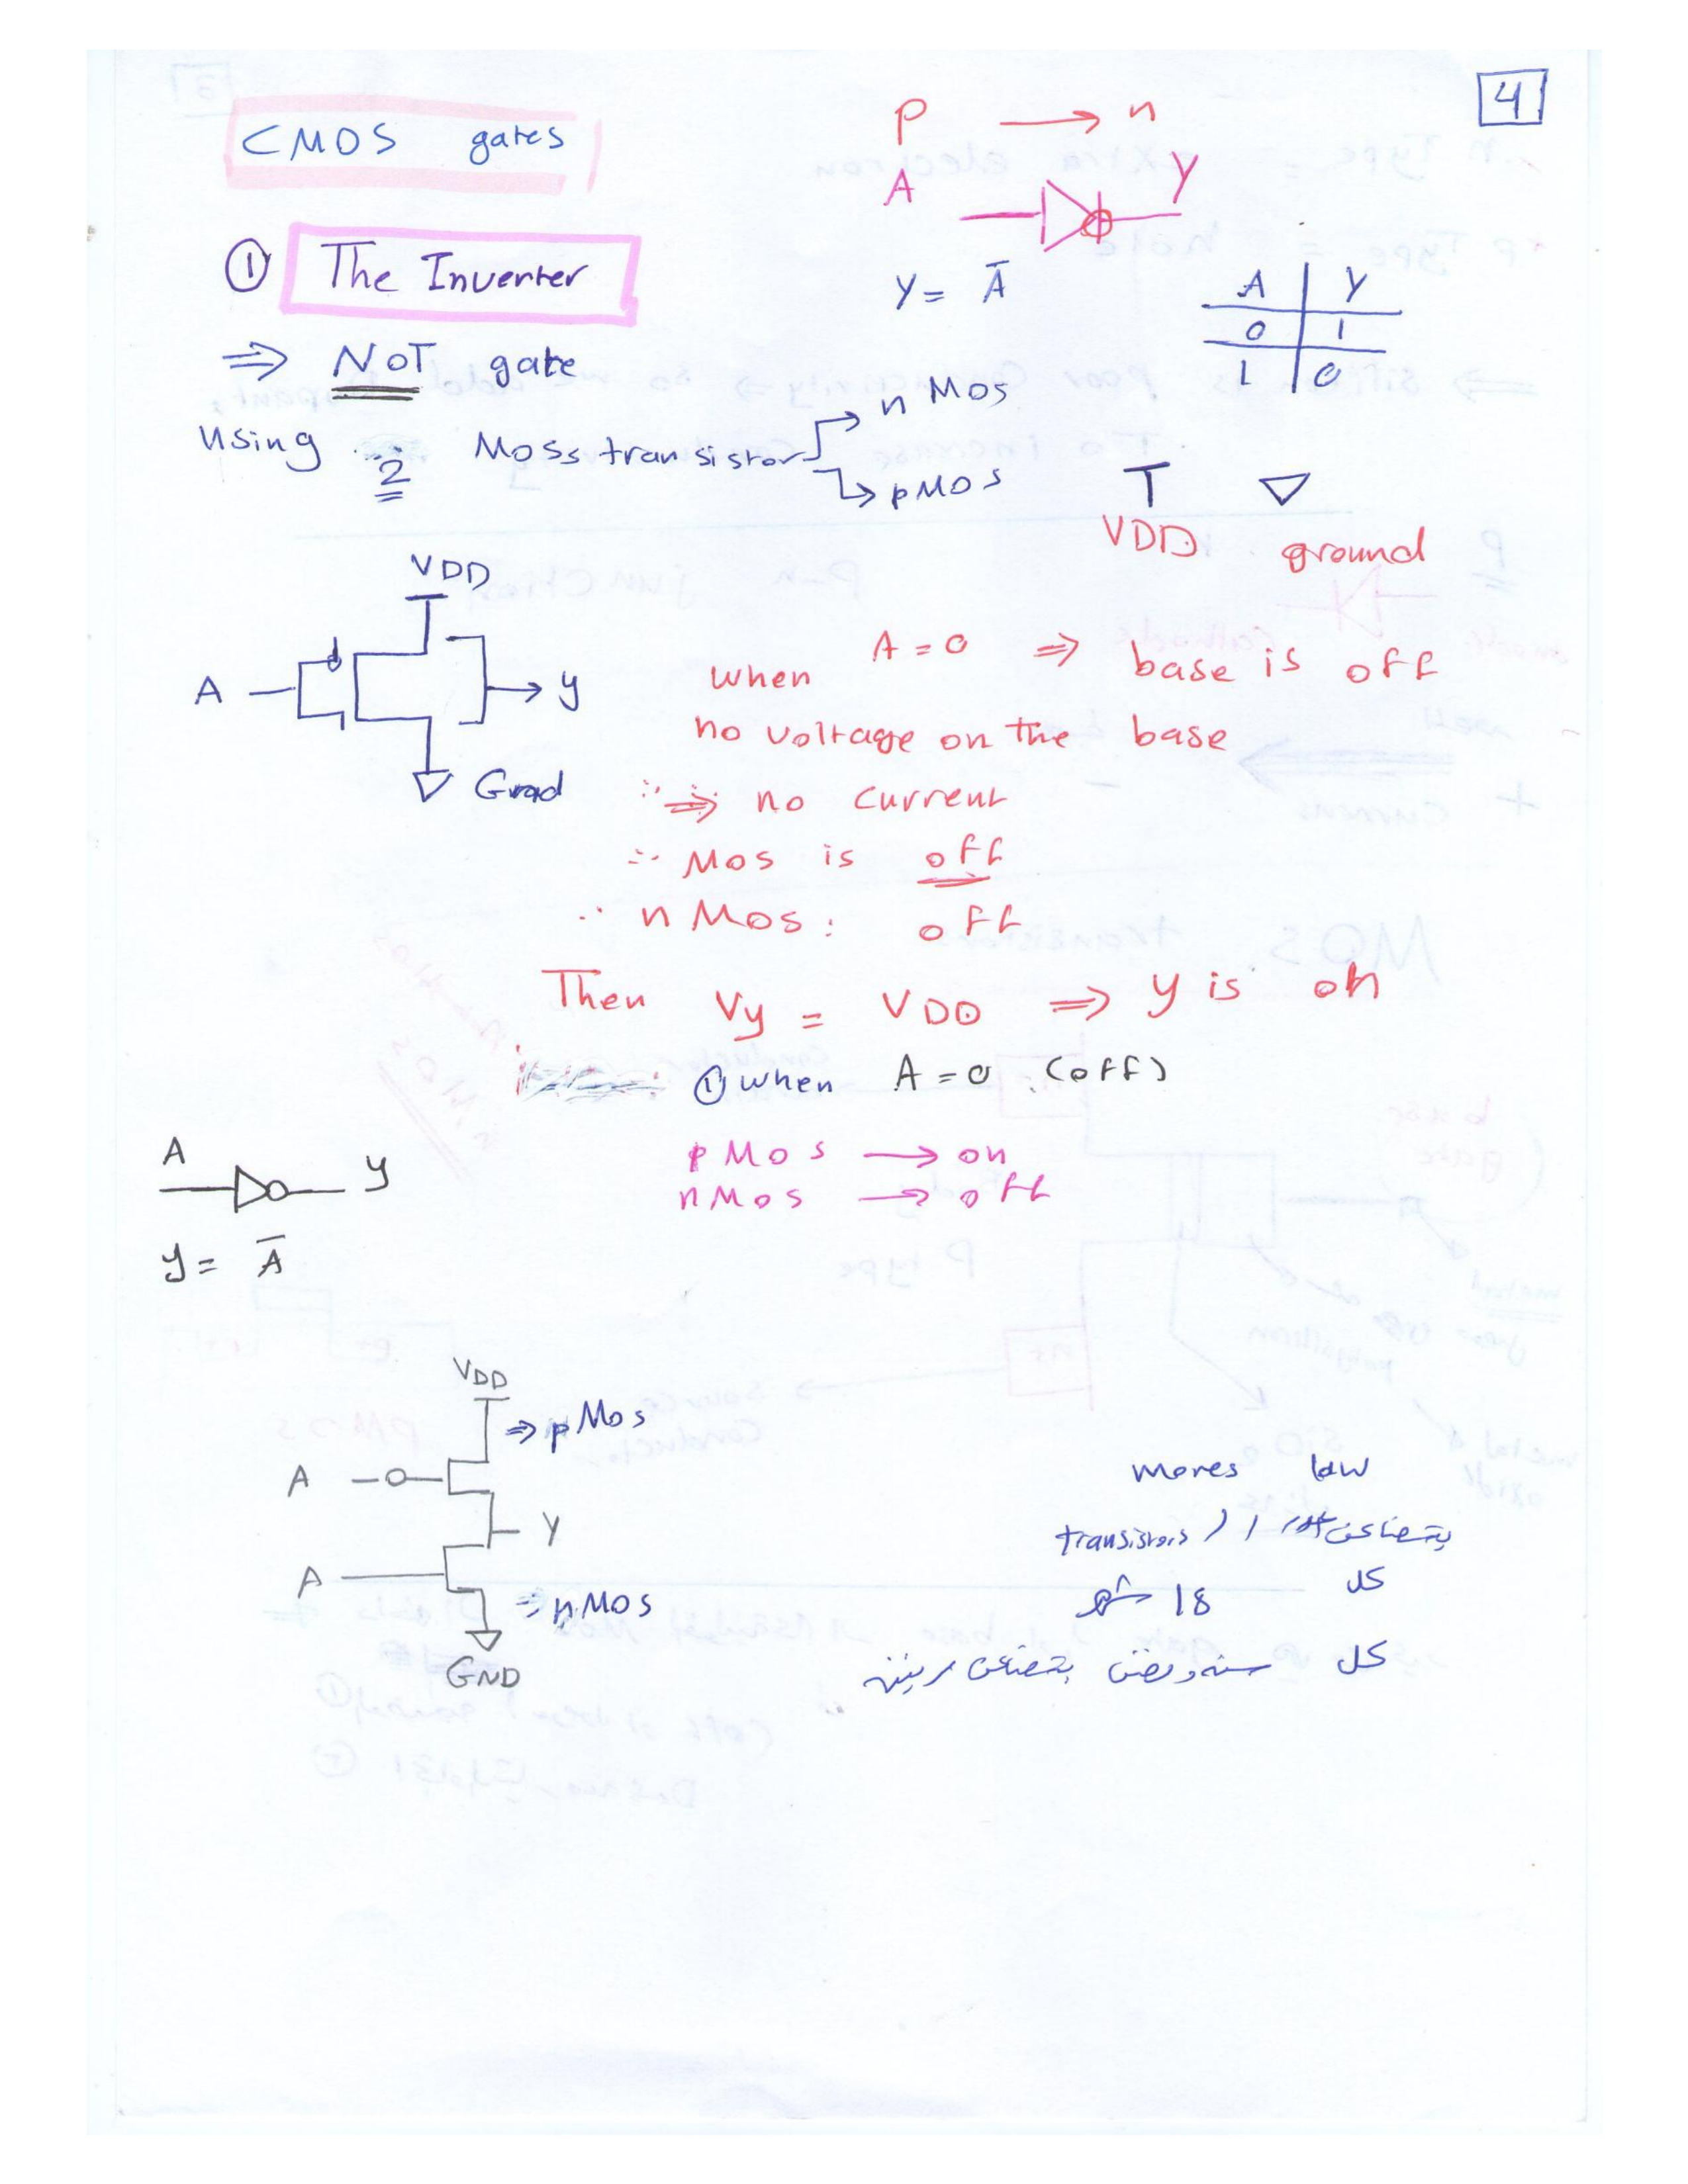 4
CMOS gates
P → n
A Y
① The Inverter
Y = Ā
A Y
0 1
1 0
⇒ NOT gate
using 2 Moss transistor
n Mos
pMOS
VDD ground
VDD
A y
Grad
when A = 0 ⇒ base is off
no voltage on the base
⇒ no current
∴ Mos is off
∴ n Mos: off
Then Vy = VDD ⇒ y is on
① when A = 0 (off)
pMos → on
nMos → off
A y
y = Ā
VDD
⇒ pMos
A
Y
A
⇒ nMOS
GND
mores law
transistors
كل
18 شهر
كل سنه ونص بتضاعف مرتين